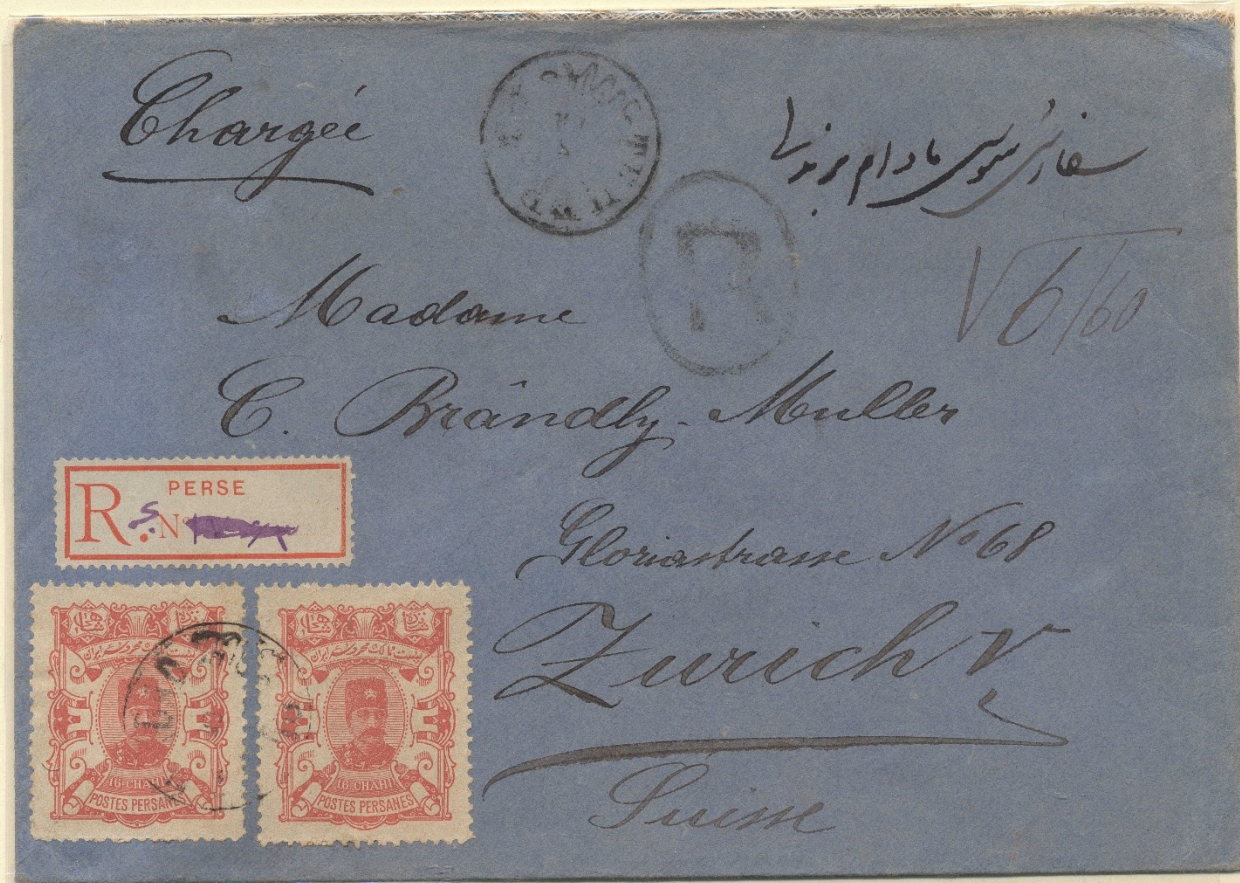 Chargée
سفارشی سویس مادام
R
V 6/60
Madame
C. Brändly-Muller
Gloriastrasse No 68
Zurich V
Suisse
PERSE
R. No
16 CHAHI
POSTES PERSANES
16 CHAHI
POSTES PERSANES